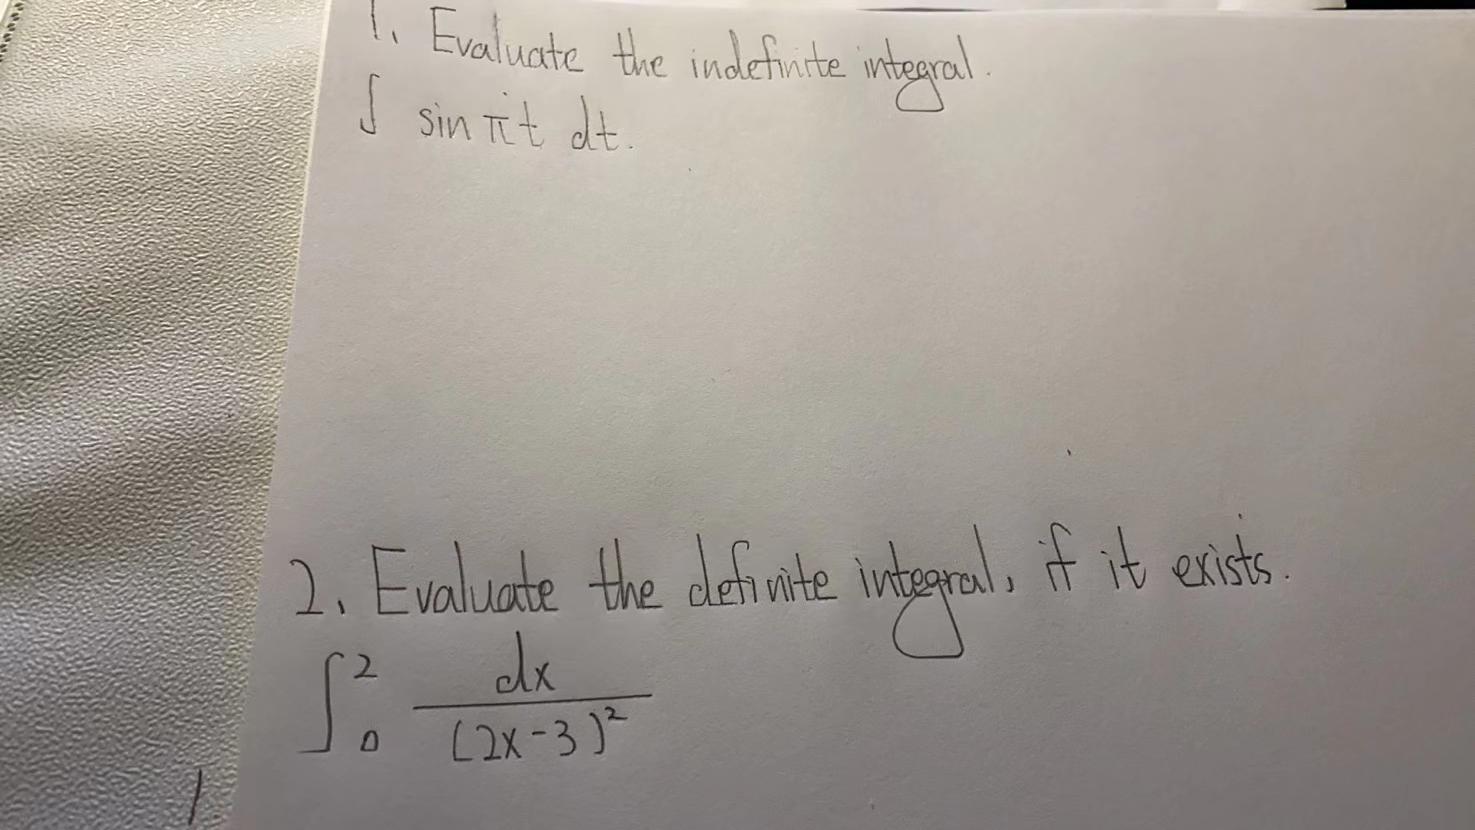 1. Evaluate the indefinite integral.
∫ sin πt dt.
2. Evaluate the definite integral, if it exists.
∫₀² dx / (2x-3)²